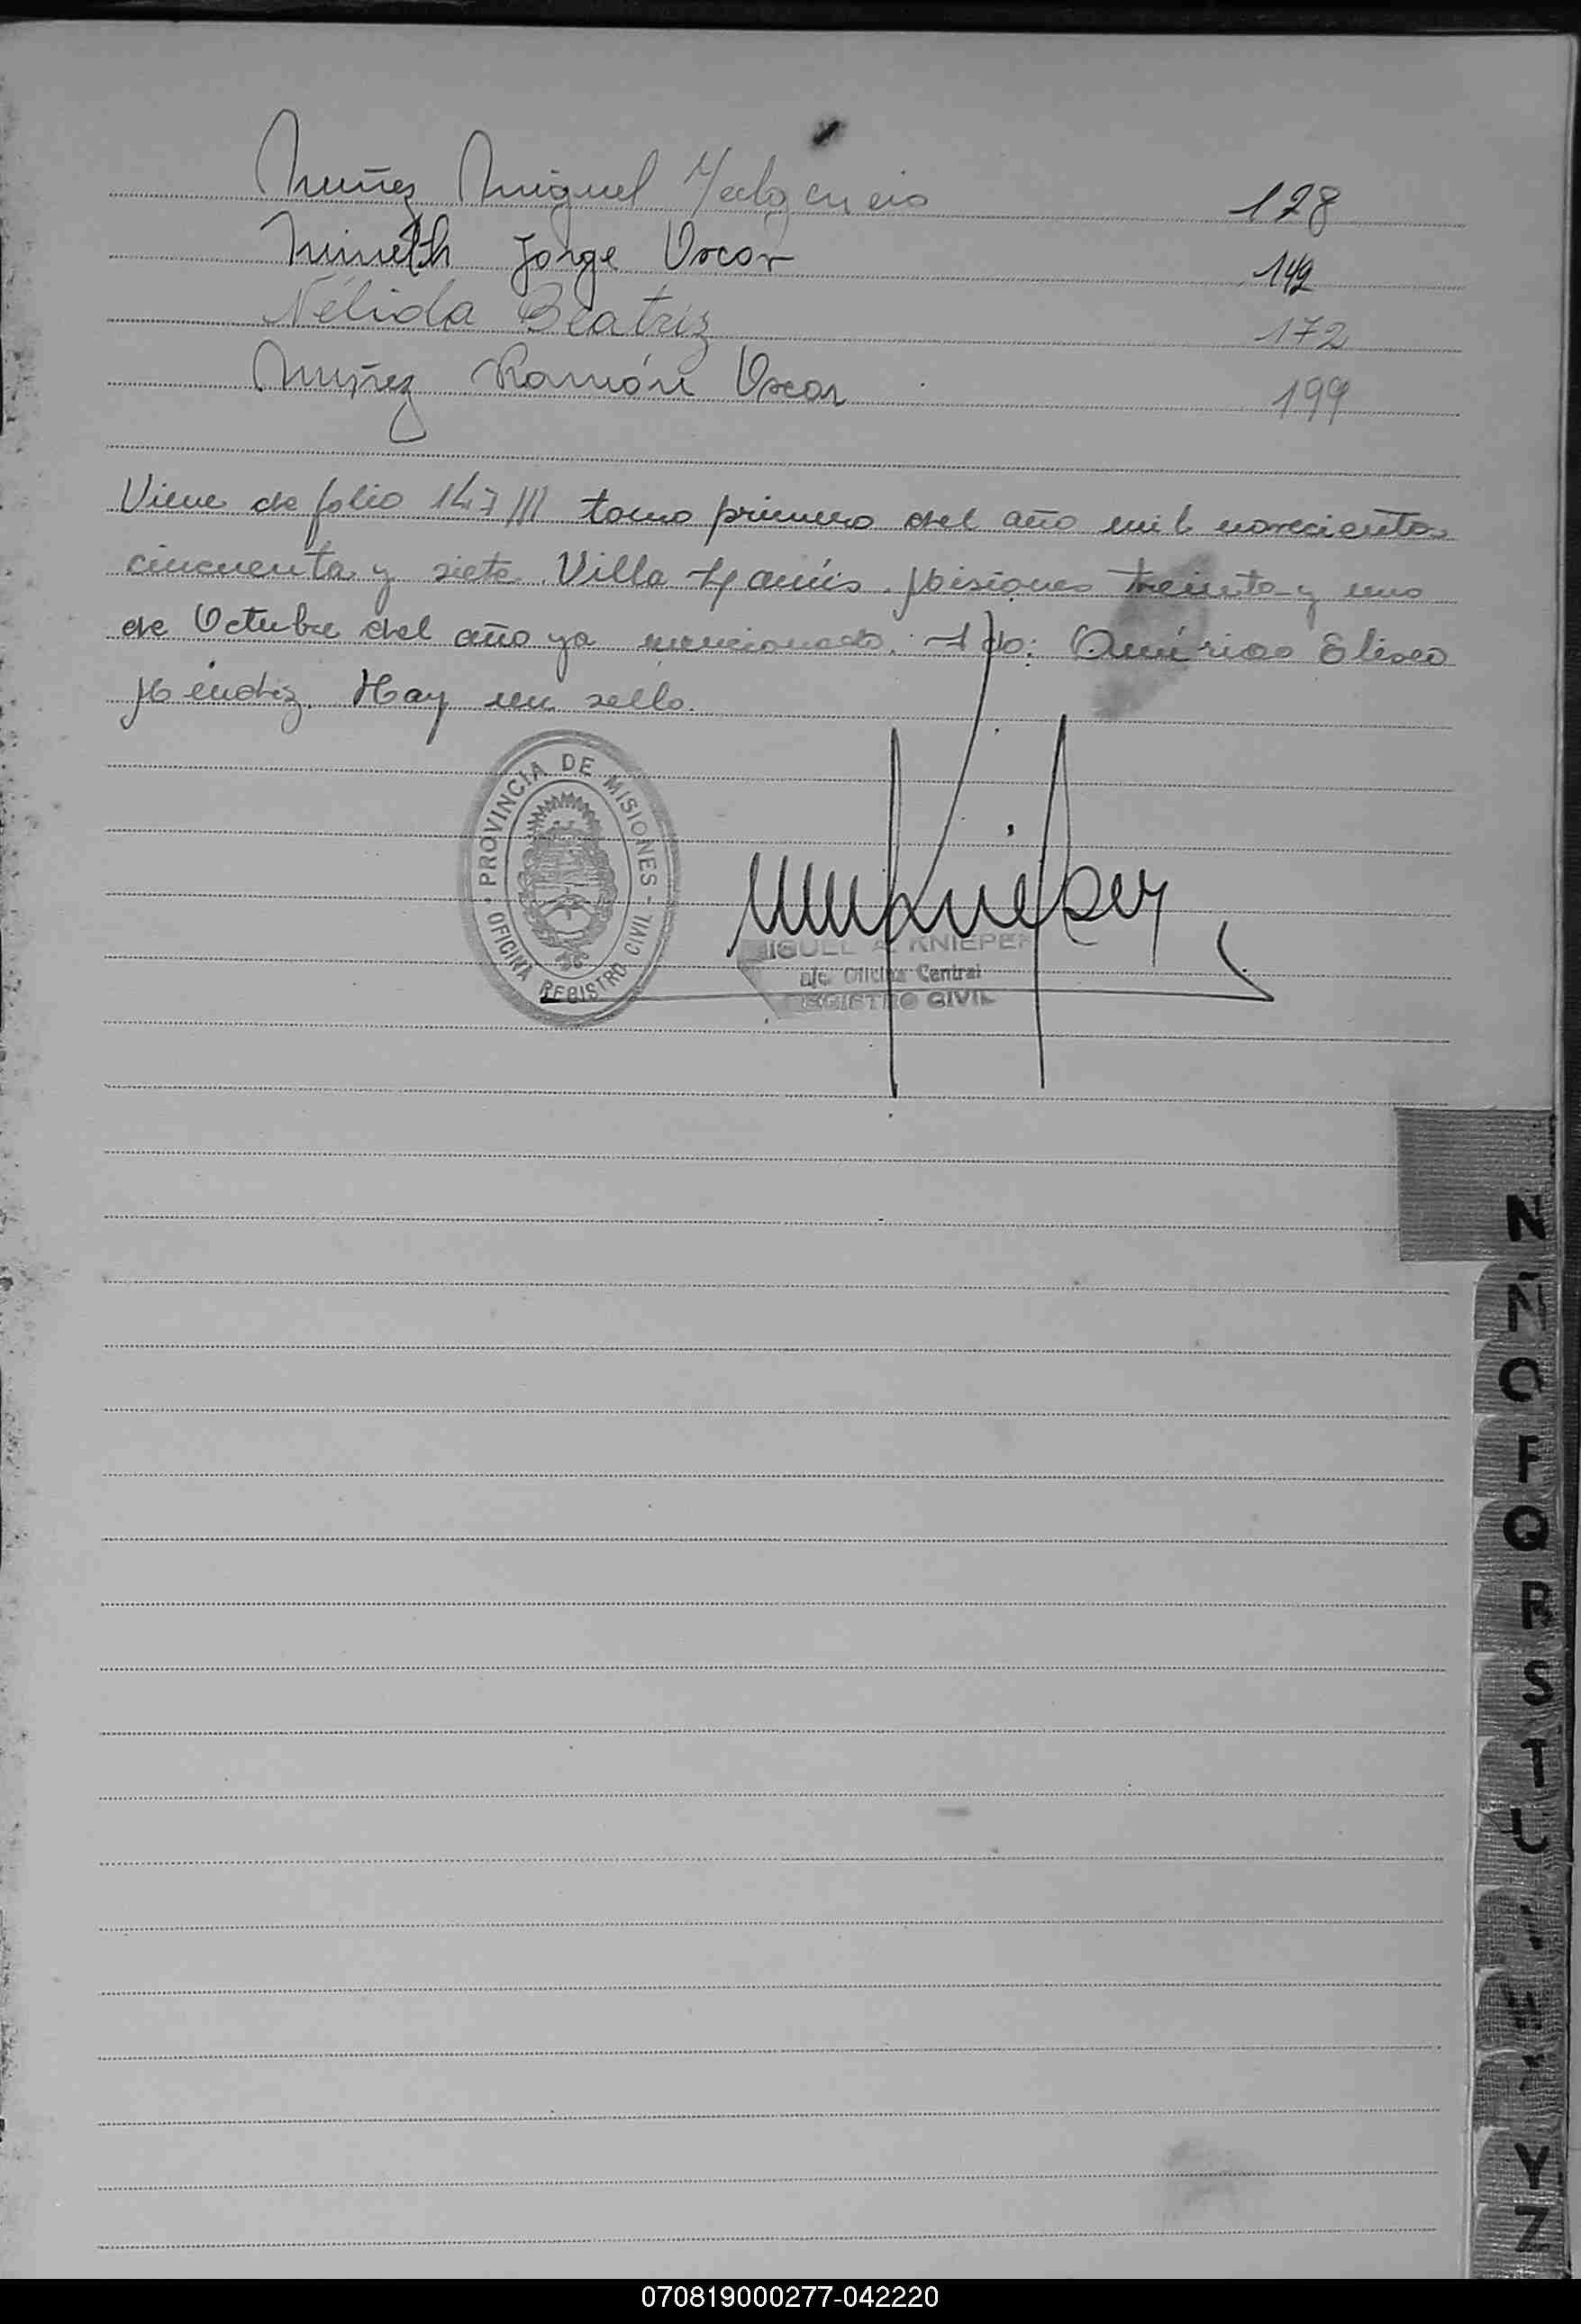 Nuñez Miguel 128
Nimeth Jorge Oscar 149
Nélida Beatriz 172
Nuñez Ramón Oscar 199
Viene de folio 147 /// tomo primero del año mil novecientos
cincuenta y siete. Villa Misiones treinta y uno
de Octubre del año ya mencionado. Fdo: Américo Eliseo
Méndez. Hay un sello.
PROVINCIA DE MISIONES
OFICINA REGISTRO CIVIL
MIGUEL A. KNIEPER
a/c. Oficina Central
REGISTRO CIVIL
N
Ñ
O
P
Q
R
S
T
U
Y
Z
070819000277-042220